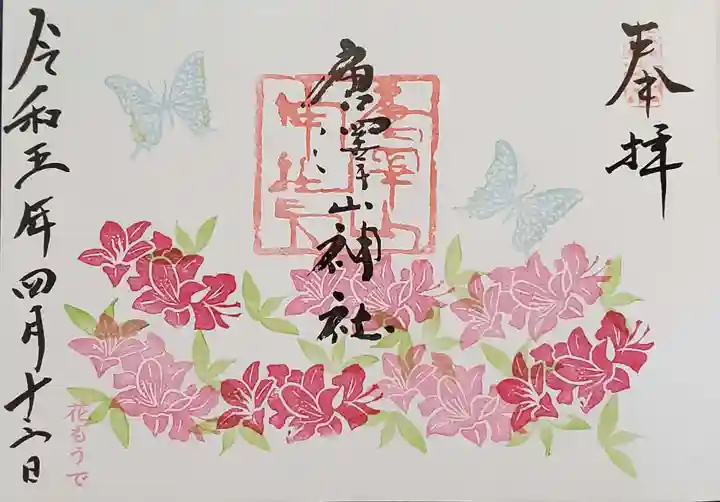 奉拝
唐澤山神社
令和五年四月十六日
花もうで